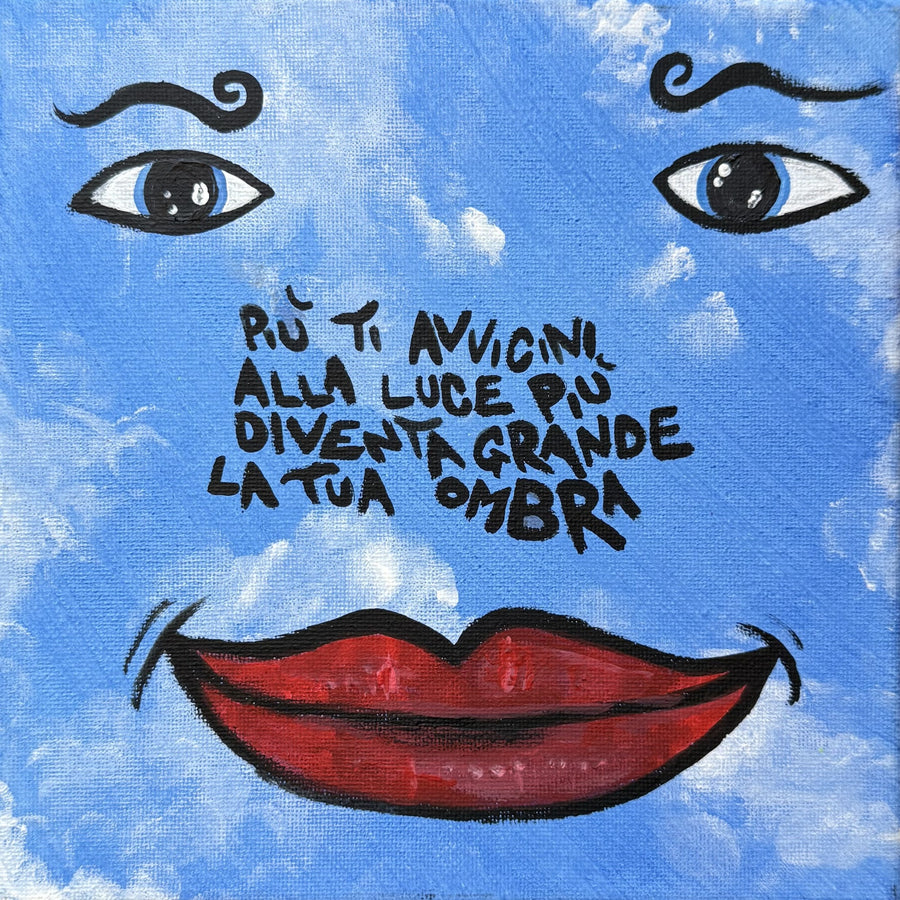 PIÙ TI AVVICINI
ALLA LUCE PIÙ
DIVENTA GRANDE
LA TUA OMBRA